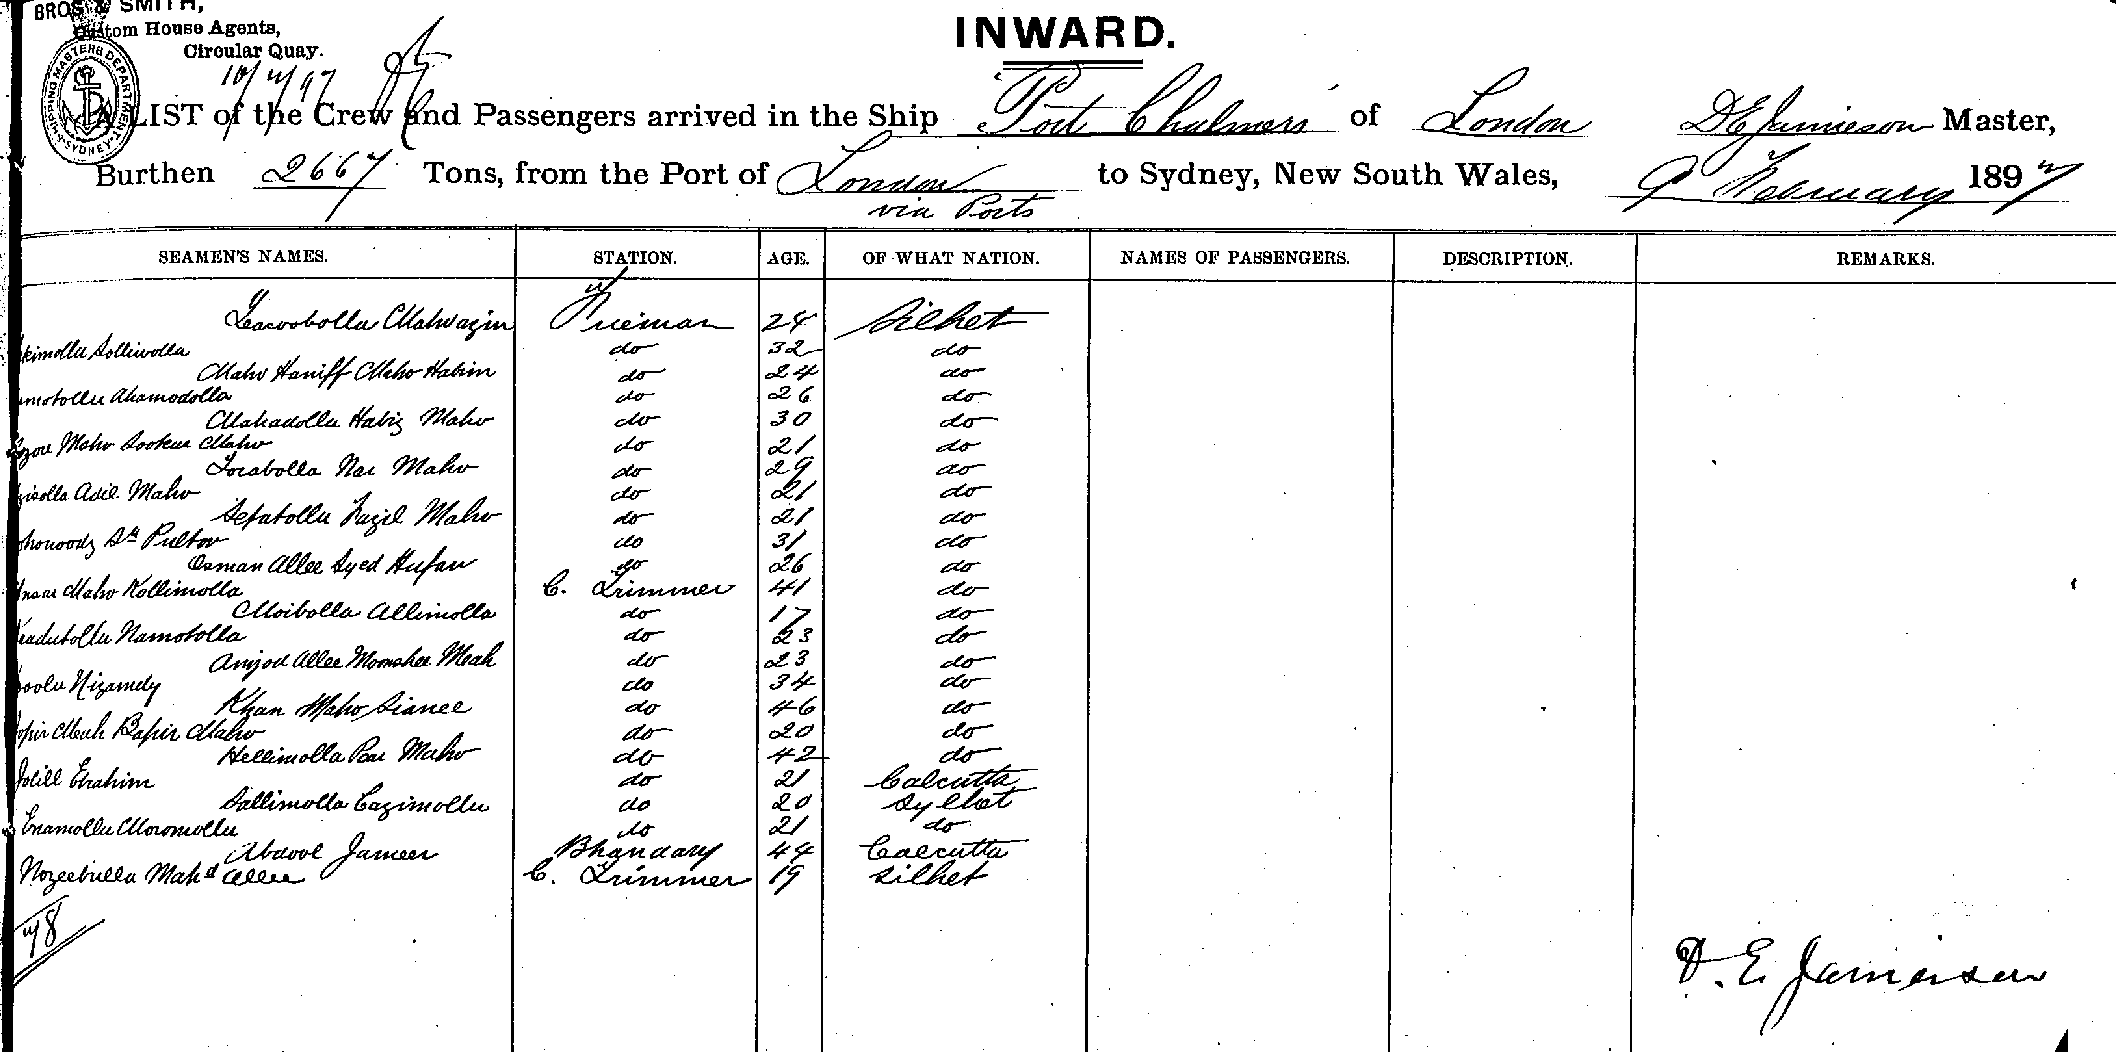 BROS & SMITH,
Custom House Agents,
Circular Quay.
INWARD.
SHIPPING MASTERS DEPARTMENT SYDNEY
A LIST of the Crew and Passengers arrived in the Ship Port Chalmers of London D E Jamieson Master,
Burthen 2667 Tons, from the Port of London to Sydney, New South Wales, 9 February 1897
via Ports
SEAMEN'S NAMES. STATION. AGE. OF WHAT NATION. NAMES OF PASSENGERS. DESCRIPTION. REMARKS.
Mahvazin Fireman 24 Silhet
do 32 do
Maho Haniff Maho Habim do 24 do
Ahamodolla do 26 do
Mahadolla Habiz Maho do 30 do
Maho Sookur Maho do 21 do
Torabolla Nar Maho do 29 do
Adil Maho do 21 do
Sefatolla Fazil Maho do 21 do
do 31 do
Osman Allee Syed Hufan do 26 do
Maho Kollimolla C. Trimmer 41 do
Moibolla Allimolla do 17 do
Namotolla do 23 do
Amjod Allee Moonshee Meah do 23 do
Nizamdy do 34 do
Khan Maho Sianee do 46 do
Meah Bapir Maho do 20 do
Hellimolla Par Maho do 42 do
Ebrahim do 21 Calcutta
Sallimolla Cazimolla do 20 Sylhet
Enamolla Moromolla do 21 do
Abdool Jameer Bhandary 44 Calcutta
Nozeebulla Mahd Allee C. Trimmer 19 Silhet
D. E. Jamieson